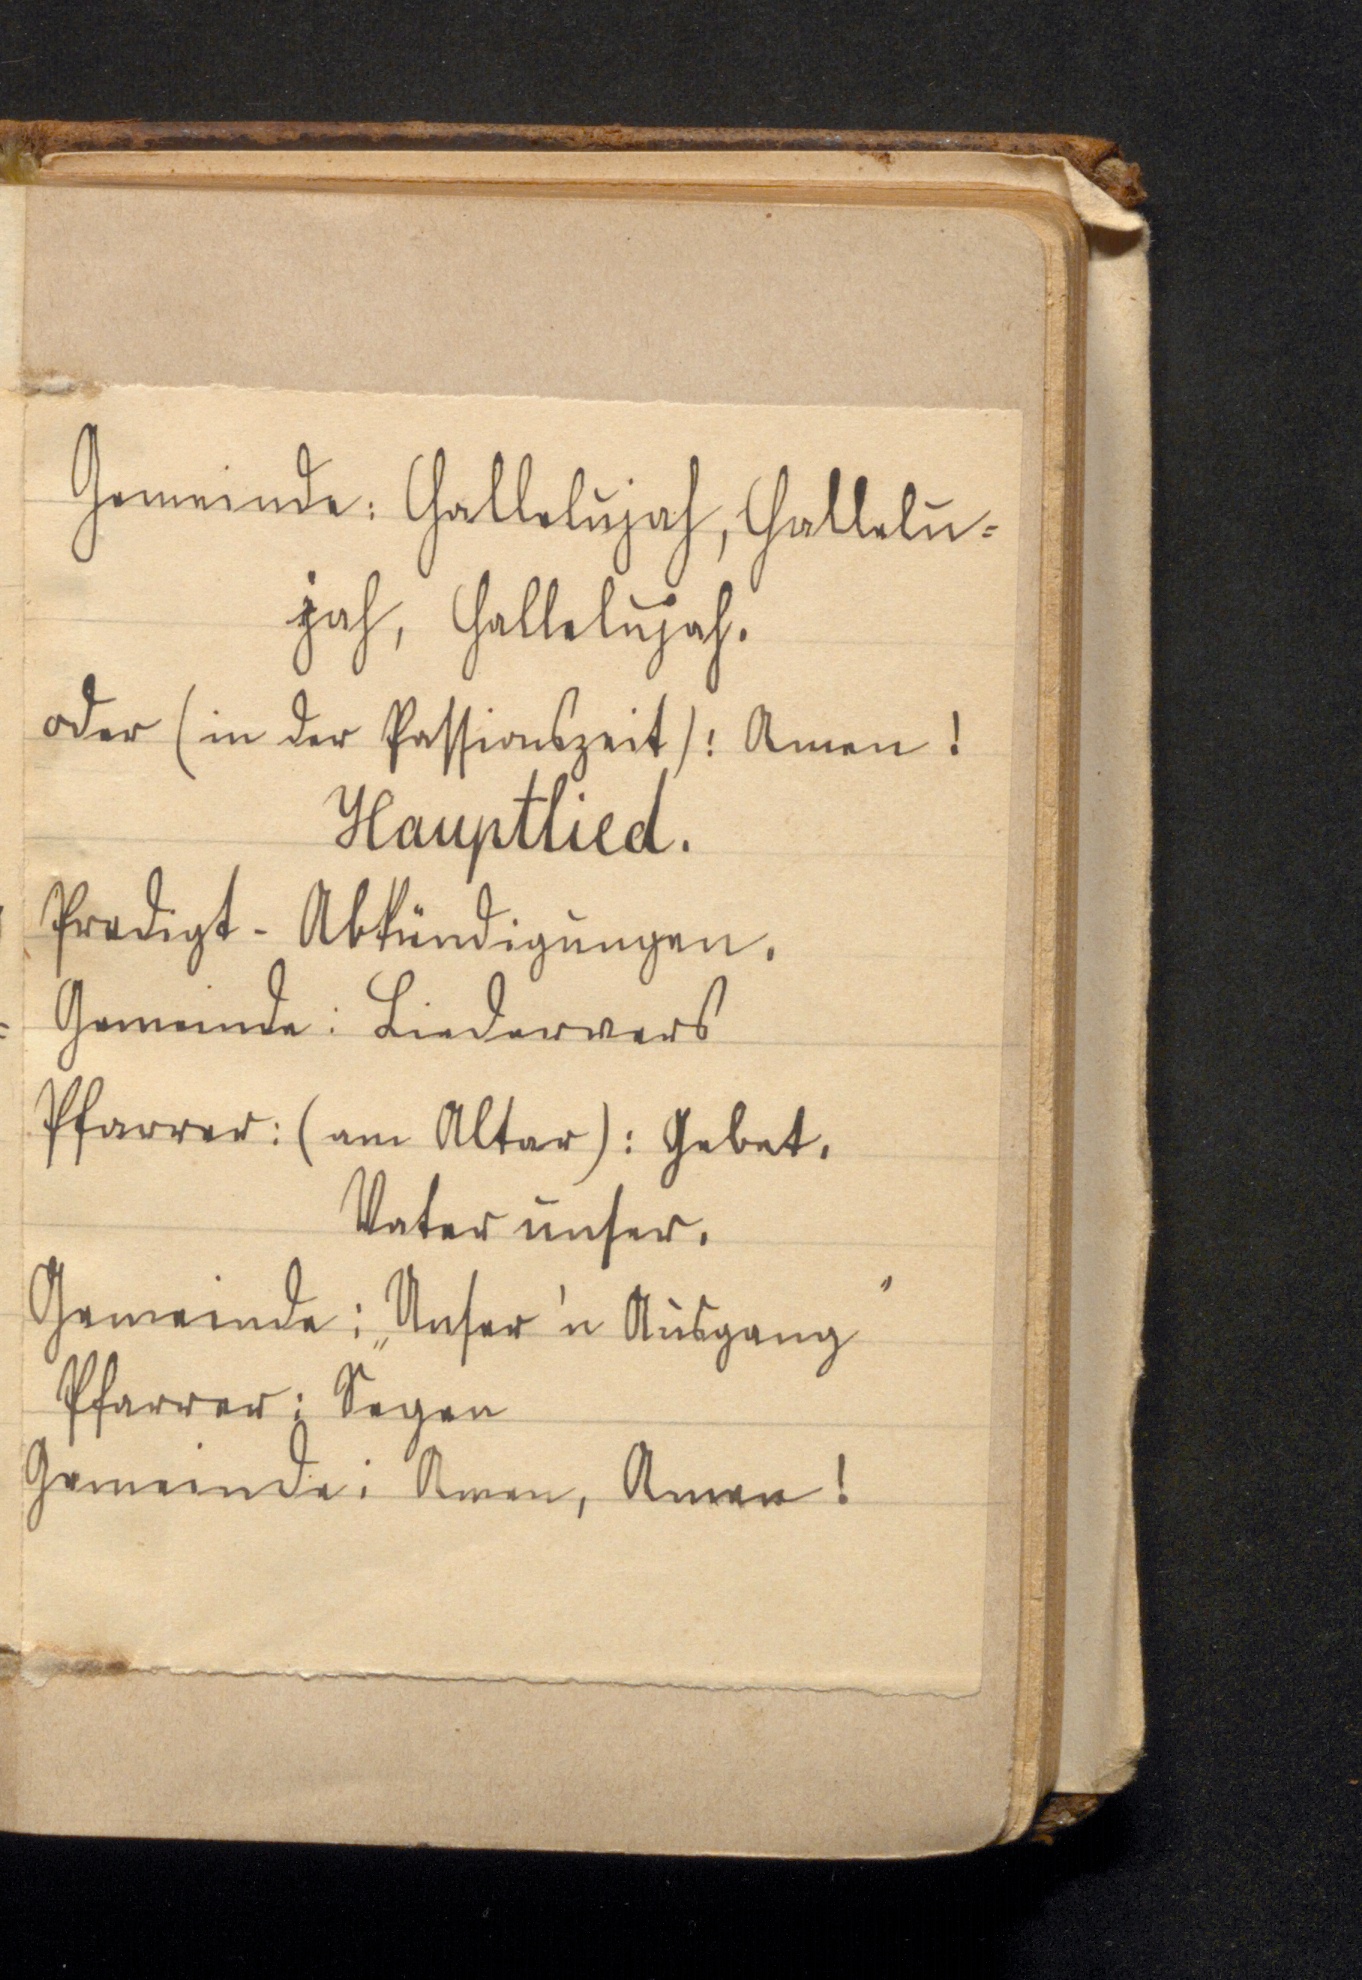 Gemeinde: Hallelujah, Hallelu=
jah, Hallelujah.
oder (in der Passionszeit): Amen!
Hauptlied.
Predigt - Abkündigungen.
Gemeinde: Liedervers
Pfarrer: (am Altar): Gebet.
Vater unser.
Gemeinde: „Unser'n Ausgang"
Pfarrer: Segen
Gemeinde: Amen, Amen!